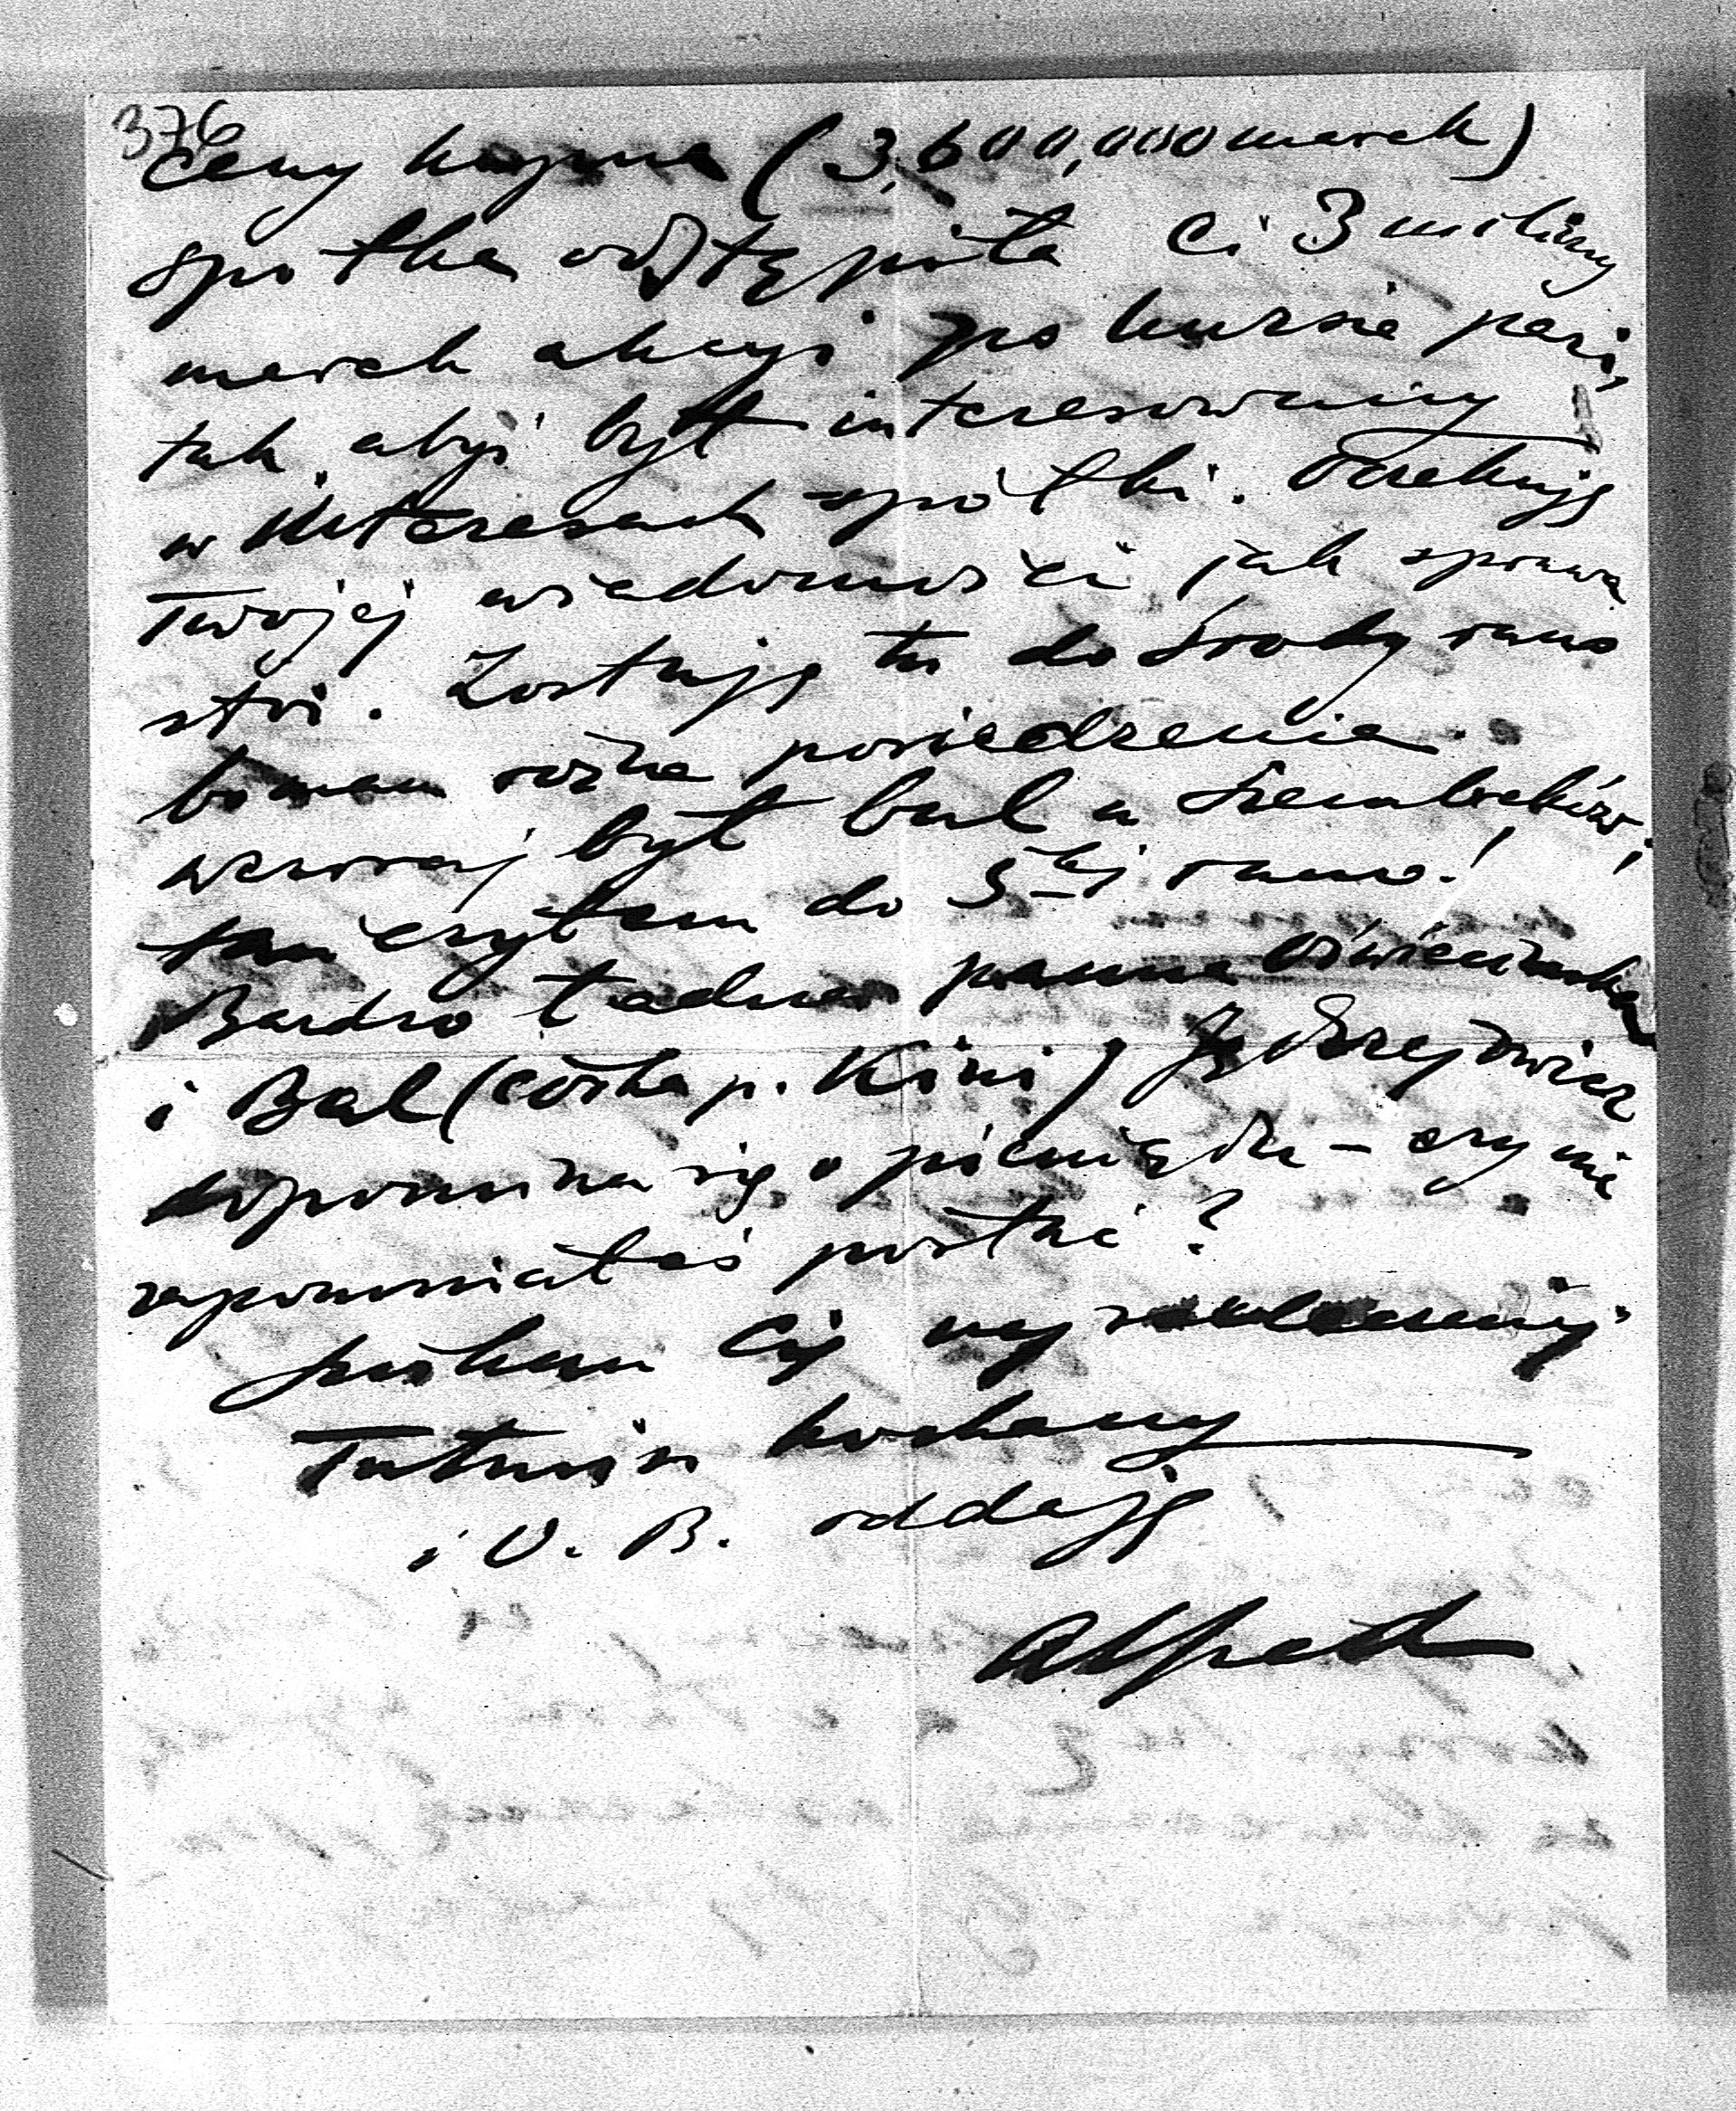 376
ceny kupna (3,600,000 marek)
spółka odstąpiła Ci 3 miliony
marek akcyi po kursie pari,
tak abyś był interesowany
w interesach spółki. Oczekuję
Twojej wiadomości jak sprawa
stoi. Zostaję tu do środy rano
bo mam różne posiedzenia.
wczoraj był bal u Szembeków,
tańczyłem do 5tej rano!
Bardzo ładna panna Oświecimska
i Bal (córka p. Kini) Jędrzejowicz
upomina się o pieniądze - czy nie
zapomniałeś posłać?
ściskam Cię najserdeczniej
Tatusiu kochany
i V. B. oddaję